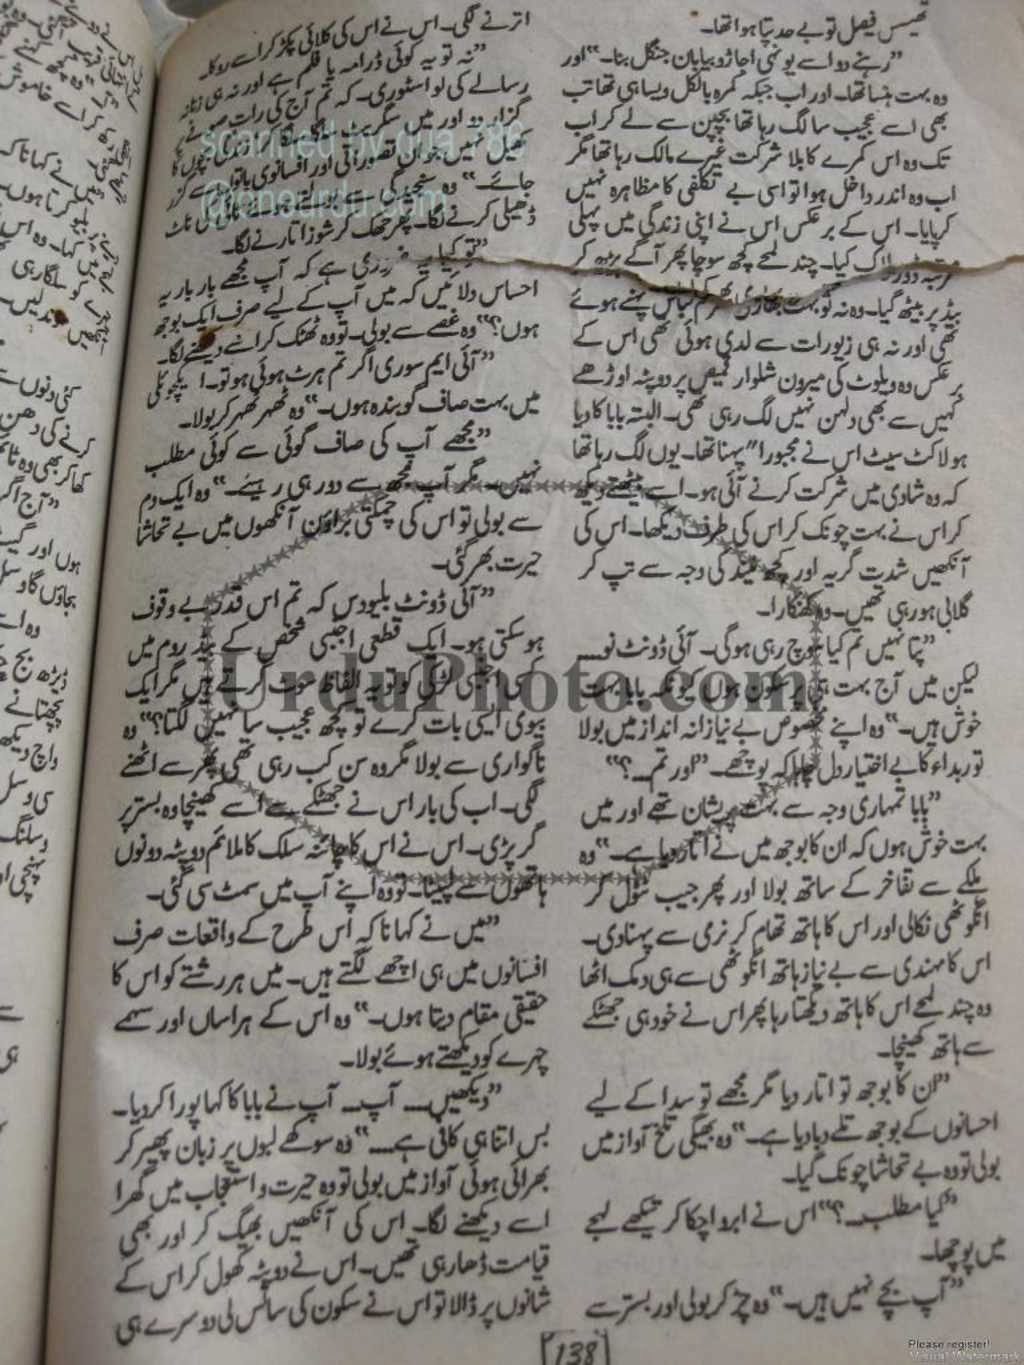 تھیس فیصل تو بے حد تپا ہوا تھا۔
"رہنے دو اسے یونہی اجاڑ و بیابان جنگل بنا۔" اور
وہ بہت ہنسا تھا۔ اور اب جبکہ کمرہ بالکل ویسا ہی تھا تب
بھی اسے عجیب سا لگ رہا تھا بچپن سے لے کر اب
تک وہ اس کمرے کا بلا شرکت غیرے مالک رہا تھا مگر
اب وہ اندر داخل ہوا تو اسی بے تکلفی کا مظاہرہ نہیں
کر پایا۔ اس کے برعکس اس نے اپنی زندگی میں پہلی
مرتبہ ڈور لاک کیا۔ چند لمحے کچھ سوچا پھر آگے بڑھ کر
بیڈ پر بیٹھ گیا۔ وہ نہ تو بہت بھاری بھرکم لباس پہنے ہوئے
تھی اور نہ ہی زیورات سے لدی ہوئی تھی اس کے
برعکس وہ ویلوٹ کی میرون شلوار قمیص پر دوپٹہ اوڑھے
کہیں سے بھی دلہن نہیں لگ رہی تھی۔ البتہ بابا کا دیا
ہوا لاکٹ سیٹ اس نے مجبورا" پہنا تھا۔ یوں لگ رہا تھا
کہ وہ شادی میں شرکت کرنے آئی ہو۔ اسے بیٹھتے دیکھ
کر اس نے بہت چونک کر اس کی طرف دیکھا۔ اس کی
آنکھیں شدت گریہ اور کچھ نیند کی وجہ سے تپ کر
گلابی ہو رہی تھیں۔ وہ کھنکارا۔
"پتا نہیں تم کیا سوچ رہی ہوگی۔ آئی ڈونٹ نو۔۔۔
لیکن میں آج بہت ہی پرسکون ہوں کیونکہ بابا بہت
خوش ہیں۔" وہ اپنے مخصوص بے نیازانہ انداز میں بولا
تو ربداء کا بے اختیار دل چاہا کہ پوچھے۔ "اور تم۔۔؟"
"بابا تمہاری وجہ سے بہت پریشان تھے اور میں
بہت خوش ہوں کہ ان کا بوجھ میں نے اتار دیا ہے۔" وہ
ہلکے سے تفاخر کے ساتھ بولا اور پھر جیب ٹٹول کر
انگوٹھی نکالی اور اس کا ہاتھ تھام کر نرمی سے پہنا دی۔
اس کا مہندی سے بے نیاز ہاتھ انگوٹھی سے ہی دمک اٹھا
وہ چند لمحے اس کا ہاتھ دیکھتا رہا پھر اس نے خود ہی جھٹکے
سے ہاتھ کھینچا۔
"ان کا بوجھ تو اتار دیا مگر مجھے تو سدا کے لیے
احسانوں کے بوجھ تلے دبا دیا ہے۔" وہ بھیگی تلخ آواز میں
بولی تو وہ بے تحاشا چونک گیا۔
"کیا مطلب۔۔؟" اس نے ابرو اچکا کر تیکھے لہجے
میں پوچھا۔
"آپ بچے نہیں ہیں۔" وہ چڑ کر بولی اور بستر سے
اترنے لگی۔ اس نے اس کی کلائی پکڑ کر اسے روکا۔
"نہ تو یہ کوئی ڈرامہ یا فلم ہے اور نہ ہی زنانہ
رسالے کی لو اسٹوری۔ کہ تم آج کی رات صوفے
گزار دو اور میں سگریٹ سلگا سلگا کر۔ زندگی بچوں کا
کھیل نہیں جو ان تصوراتی اور افسانوی باتوں سے گزر
جائے۔" وہ سنجیدگی سے بولتے ہوئے ٹائی کی ناٹ
ڈھیلی کرنے لگا۔ پھر جھک کر شوز اتارنے لگا۔
"تو کیا یہ ضروری ہے کہ آپ مجھے بار بار یہ
احساس دلائیں کہ میں آپ کے لیے صرف ایک بوجھ
ہوں؟" وہ غصے سے بولی۔ تو وہ ٹھٹک کر اسے دیکھنے لگا۔
"آئی ایم سوری اگر تم ہرٹ ہوئی ہو تو۔ ایکچوئلی
میں بہت صاف گو بندہ ہوں۔" وہ ٹھہر ٹھہر کر بولا۔
"مجھے آپ کی صاف گوئی سے کوئی مطلب
نہیں۔ مگر آپ مجھ سے دور ہی رہیئے۔" وہ ایک دم
سے بولی تو اس کی چمکتی براؤن آنکھوں میں بے تحاشا
حیرت بھر گئی۔
"آئی ڈونٹ بلیو دس کہ تم اس قدر بے وقوف
ہو سکتی ہو۔ ایک قطعی اجنبی شخص کے بیڈ روم میں
کسی اجنبی لڑکی کو تو یہ الفاظ سوٹ کرتے ہیں مگر ایک
بیوی ایسی بات کرے تو کچھ عجیب سا نہیں لگتا؟" وہ
ناگواری سے بولا مگر وہ سن کب رہی تھی پھر سے اٹھنے
لگی۔ اب کی بار اس نے جھٹکے سے اسے کھینچا وہ بستر پر
گر پڑی۔ اس نے اس کا چائنہ سلک کا ملائم دوپٹہ دونوں
ہاتھوں سے لپیٹا۔ تو وہ اپنے آپ میں سمٹ سی گئی۔
"میں نے کہا نا کہ اس طرح کے واقعات صرف
افسانوں میں ہی اچھے لگتے ہیں۔ میں ہر رشتے کو اس کا
حقیقی مقام دیتا ہوں۔" وہ اس کے ہراساں اور سہمے
چہرے کو دیکھتے ہوئے بولا۔
"دیکھیں۔۔۔ آپ۔۔ آپ نے بابا کا کہا پورا کر دیا۔
بس اتنا ہی کافی ہے۔۔۔" وہ سوکھے لبوں پر زبان پھیر کر
بھرائی ہوئی آواز میں بولی تو وہ حیرت و استعجاب میں گھرا
اسے دیکھنے لگا۔ اس کی آنکھیں بھیگ کر اور بھی
قیامت ڈھا رہی تھیں۔ اس نے دوپٹہ کھول کر اس کے
شانوں پر ڈالا تو اس نے سکون کی سانس لی دوسرے ہی
138
UrduPhoto.com
Please register!
Visual Watermark